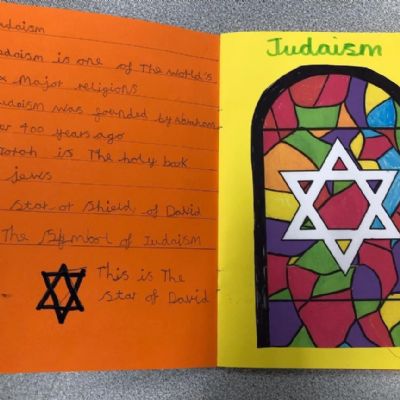 Judaism
udaism is one of The world's
x Major religions
udaism was founded by Abraham
er 400 years ago
Torah is The holy book
jews
Star or Shield of David
The Symbol of Judaism
This is The
Star of David
Judaism